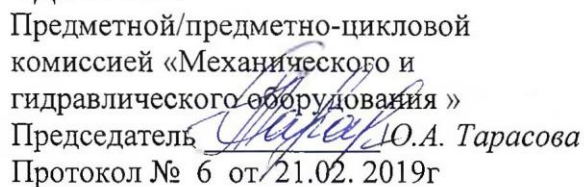 Предметной/предметно-цикловой
комиссией «Механического и
гидравлического оборудования »
Председатель О.А. Тарасова
Протокол № 6 от 21.02. 2019г